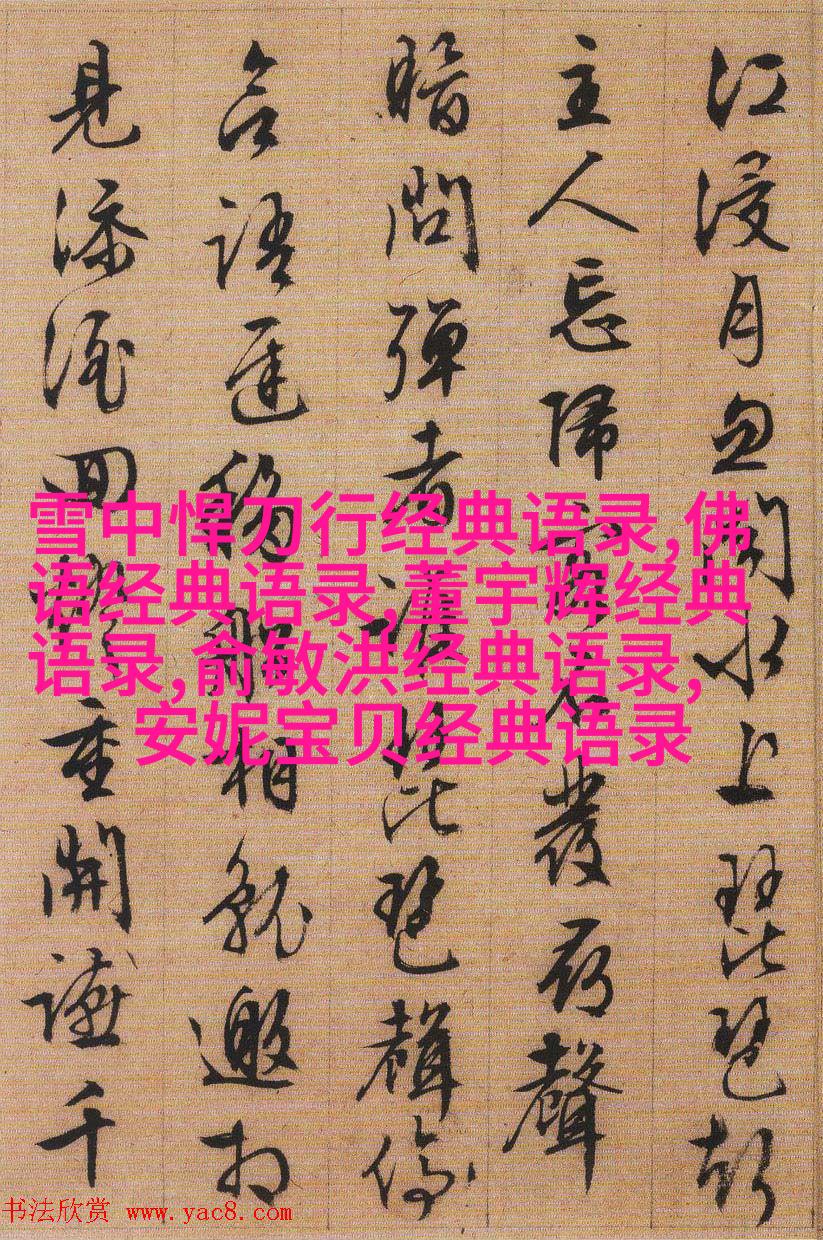 江浸月忽聞水上琵琶
主人忘歸客不發尋聲
暗問彈者誰琵琶聲停
語遲移船相就邀相
見添酒回燈重開讌千
雪中悍刀行经典语录,佛
语经典语录,董宇辉经典
语录,俞敏洪经典语录,
安妮宝贝经典语录
书法欣赏 www.yac8.com